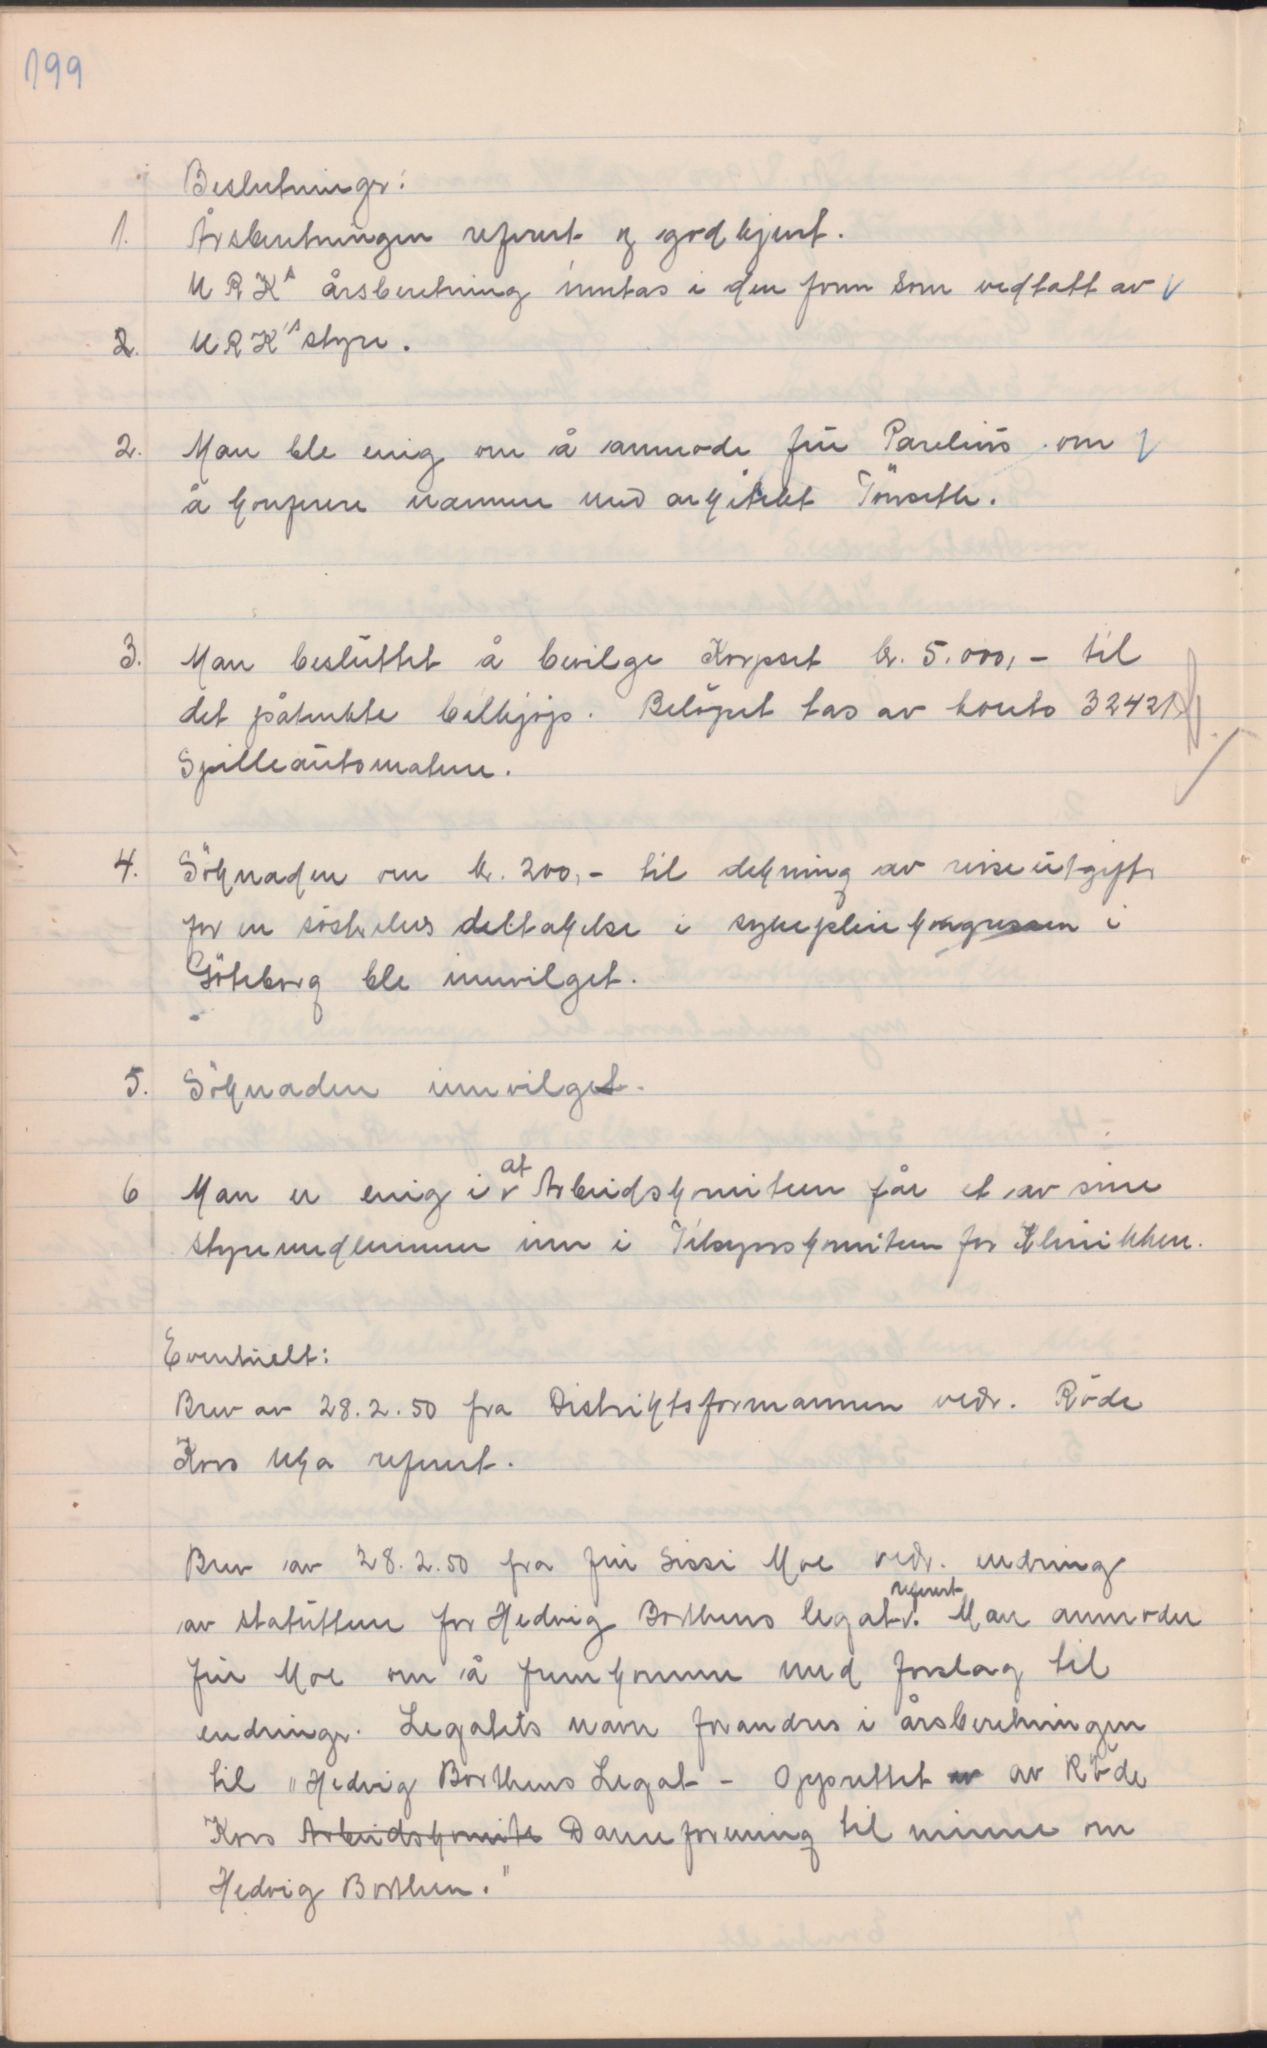 199
Beslutninger:
1. Årsberetningen referert og godkjent.
U R K's årsberetning inntas i den form som vedtatt av
2. U R K's styre.
2. Man ble enig om å anmode fru Parelius om
å konferere nærmere med arkitekt Tönseth.
3. Man besluttet å bevilge Korpset kr. 5.000,- til
det påtenkte bilkjøp. Belöpet tas av konto 32421
Spilleautomatene.
4. Söknaden om kr. 200,- til dekning av reiseutgifter
for en søsters deltakelse i sykepleiekongressen i
Göteborg ble innvilget.
5. Söknaden innvilget.
6 Man er enig i at Arbeidskomiteen får et av sine
styremedlemmer inn i Tilsynskomiteen for Klinikken.
Eventuelt:
Brev av 28.2.50 fra Distriktsformannen vedr. Röde
Kors Uka referert.
Brev av 28.2.50 fra fru Sissi Moe vedr. endring
av statuttene for Hedvig Borthens legat referert. Man anmoder
fru Moe om å fremkomme med forslag til
endringer. Legatets navn forandres i årsberetningen
til "Hedvig Borthens Legat - Opprettet av Röde
Kors Arbeidskomite Dameforening til minne om
Hedvig Borthen."